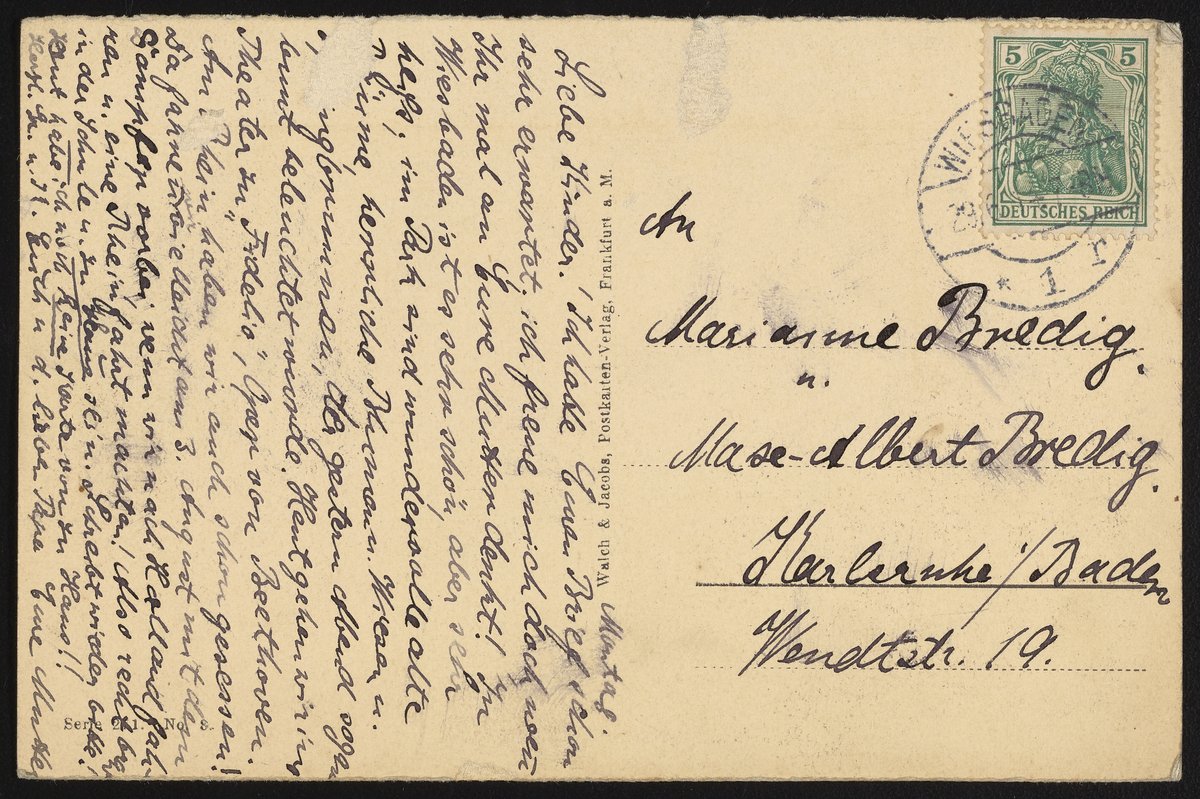 Montag.
Liebe Kinder! Ich habe Euren Brief schon
sehr erwartet, ich freue mich doch wenn
Ihr mal an Eure Mutter denkt! In
Wiesbaden ist es sehr schön, aber sehr
heiß; im Park sind wundervolle alte
Bäume, herrliche Blumen u. Wiesen u.
Springbrunnen, der gestern Abend sogar
bunt beleuchtet wurde. Heut gehen wir ins
Theater zu "Fidelio", Oper von Beethoven.
Am Rhein haben wir auch schon gesessen!
Da fahren vielleicht am 3. August mit dem
Dampfer vorbei, wenn wir nach Holland fah-
ren u. eine Rheinfahrt machten! Also recht brav
in der Schule u. zu Hause sein u. schreibt wieder bitte!
Heut habe ich noch keine Karte von zu Haus!!
Herzl. Gr. u. K. Euch u. d. lieben Papa Eure Mutter
Serie 211. No. 8.
Walch & Jacobs, Postkarten-Verlag, Frankfurt a. M.
5 5
DEUTSCHES REICH
WIESBADEN
* 1 r
An
Marianne Bredig,
u.
Max-Albert Bredig,
Karlsruhe i/Baden
Wendtstr. 19.